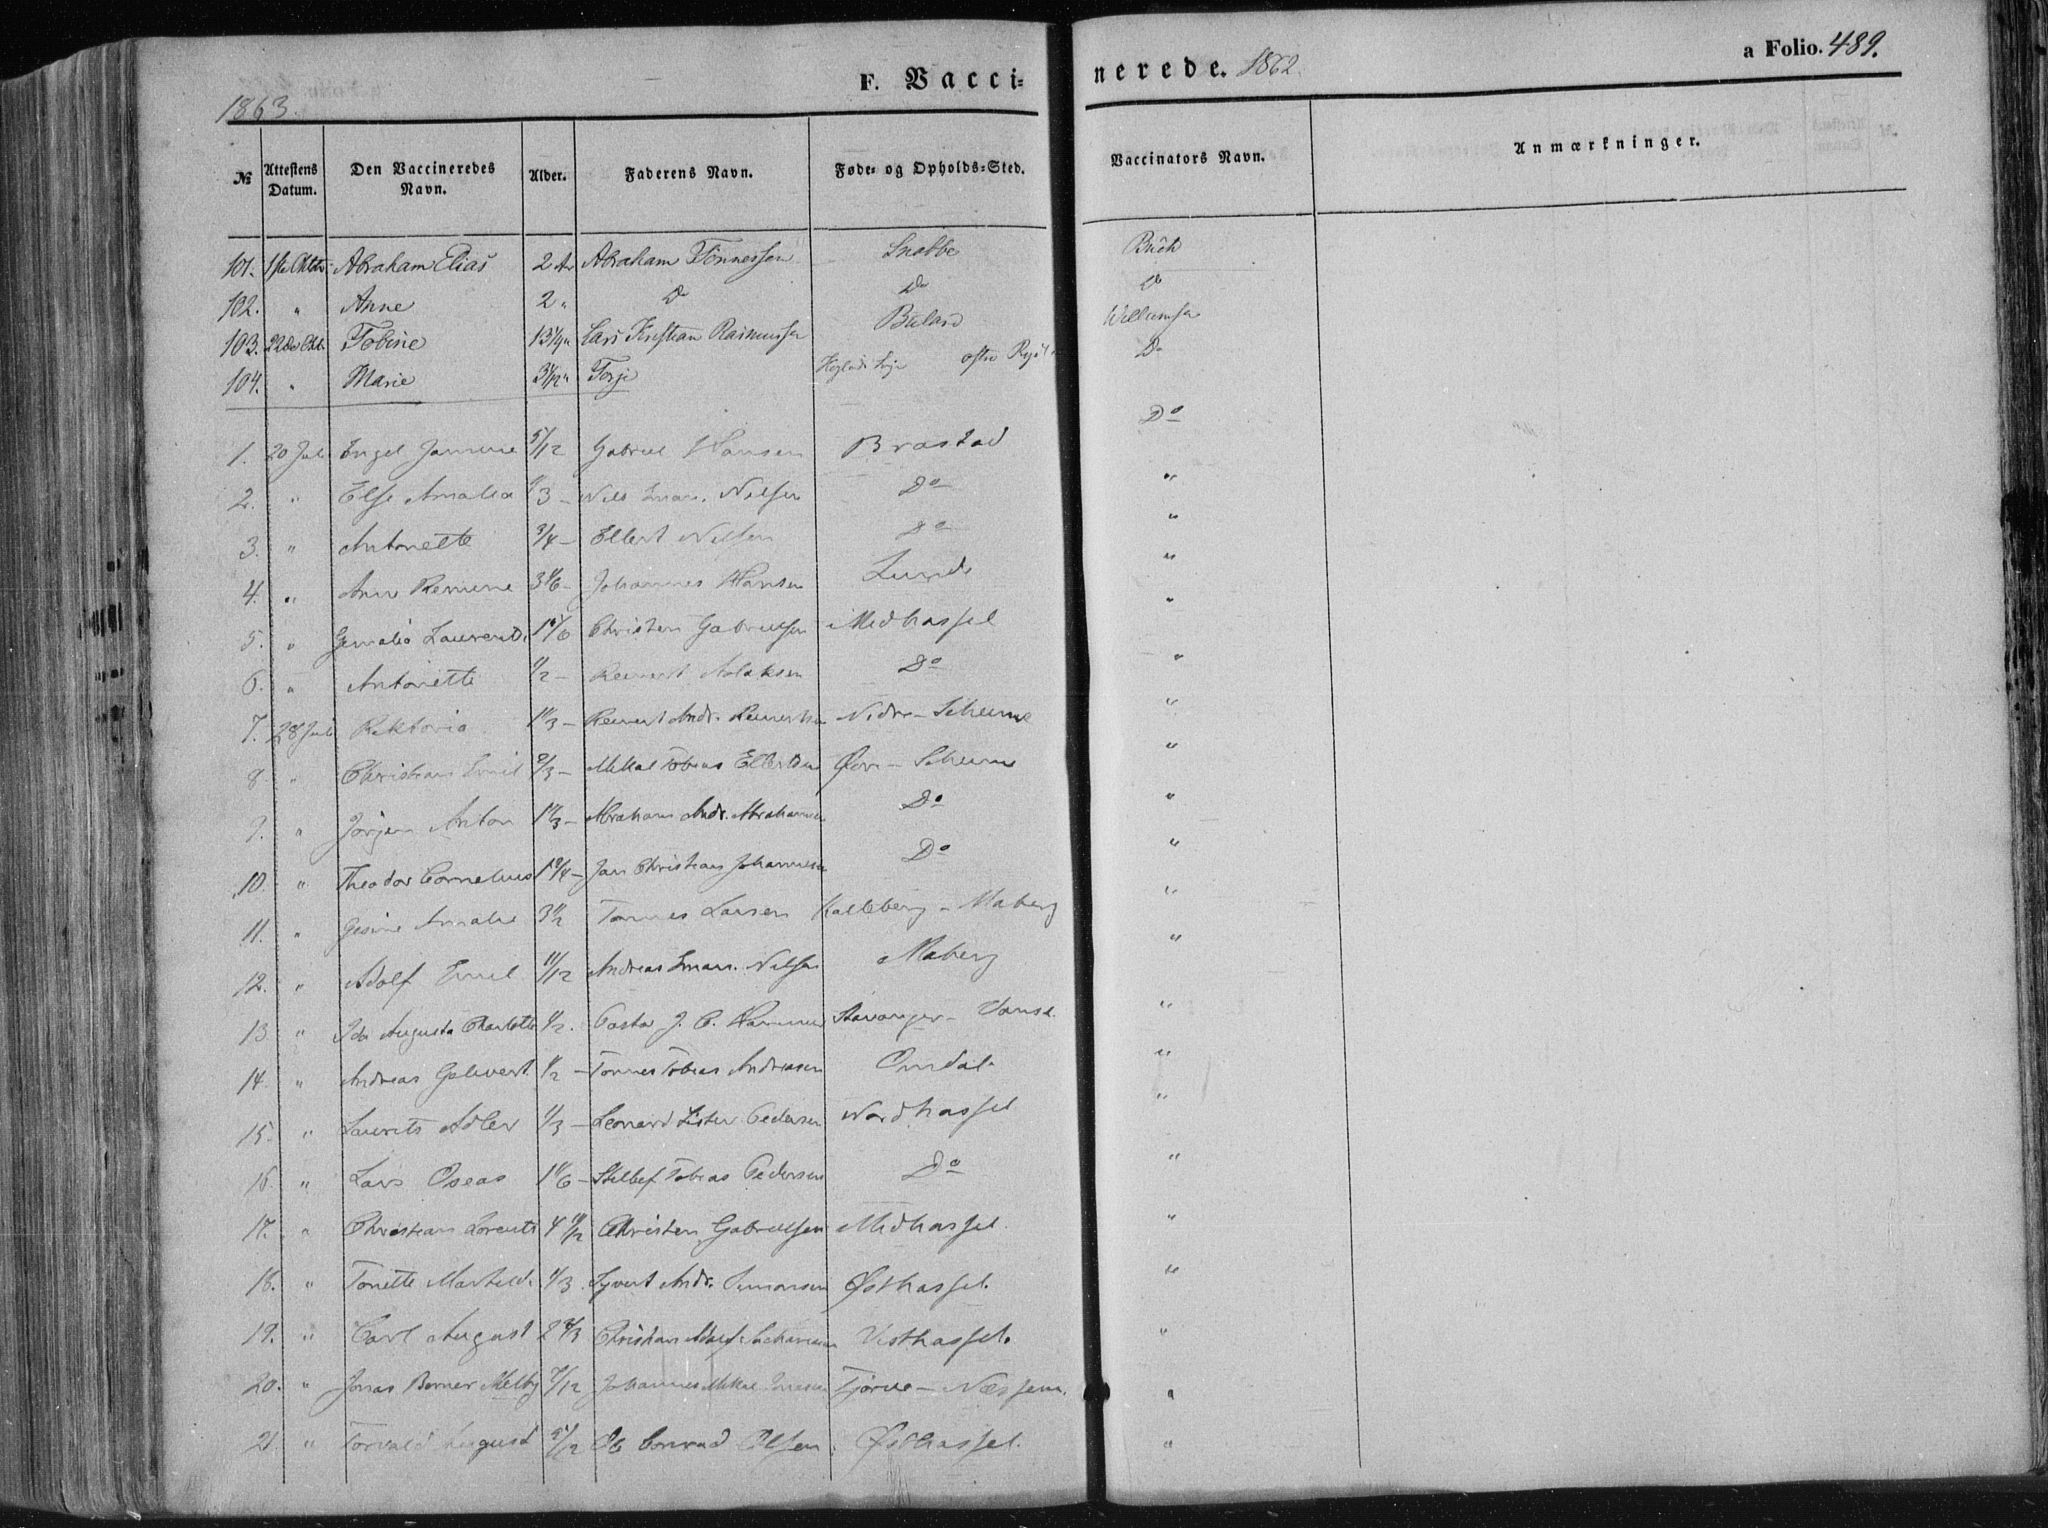 a Folio. 489.
F. Vaccinerede. 1862.
1863.
№ Attestens Datum. Den Vaccineredes Navn. Alder. Faderens Navn. Føde- og Opholds-Sted. Vaccinators Navn. Anmærkninger.
101. 1ste Abraham Elias 2 Ar Abraham Tønnessen Snabbe Büch
102. " Anne 2 " Do Do Do
103. 22de Okt. Tobine Lars Kristian Rasmussen Willumsen
104. " Marie Torje østre Do
1. 20 Juli Engel 5/12 Gabriel Hansen Brastad Do
2. " Else Amalia 1/3 - Nils Eman. Nilsen Do "
3. " Antonette 3/4 - Ellert Nilsen Do "
4. " Ane 3 1/6 - Johannes Hansen Lunde "
5. " 1 1/6 Christen Gabrielsen Midhassel "
6. " Antonette 1/2 - Reinert Aslaksen Do "
7. 28 Juli 1 1/3 - Reinert Andr. Reinertsen Nedre - Skeime "
8. " Christian Emil 2/3 - Mikal Tobias Ellertsen Øvre - Skeime "
9. " Jørgen Anton 1 1/3 - Abraham Andr. Abrahamsen Do "
10. " Theodor Cornelius 1 3/4 - Jan Christian Johannesen Do "
11. " Gesine Amalie 3 1/2 Tønnes Larsen Kalleberg - Maberg "
12. " Adolf Emil 11/12 Andreas Eman. Nilsen Maberg "
13. " Ida Augusta Charlotte 1/2. J. C. Stavanger - Vanse "
14. " Andreas 1/2 - Tønnes Tobias Andreasen Omdal. "
15. " Laurits Adler 1/3 - Leonard Lister Pedersen Nordhassel "
16. " Lars Oseas 1 1/6 - Tobias Pedersen Do "
17. " Christian Lorents 4 Christen Gabrielsen Midhassel. "
18. " Tonette 1/3 Syvert Andr. Simonsen Østhassel. "
19. " Carl August 2 2/3 Christian Adolf Vesthassel. "
20. " Jonas Berner Melby 7/12 Johannes Mikal Tjørve - "
21. " Torvald August Ole Conrad Olsen. Østhassel. "